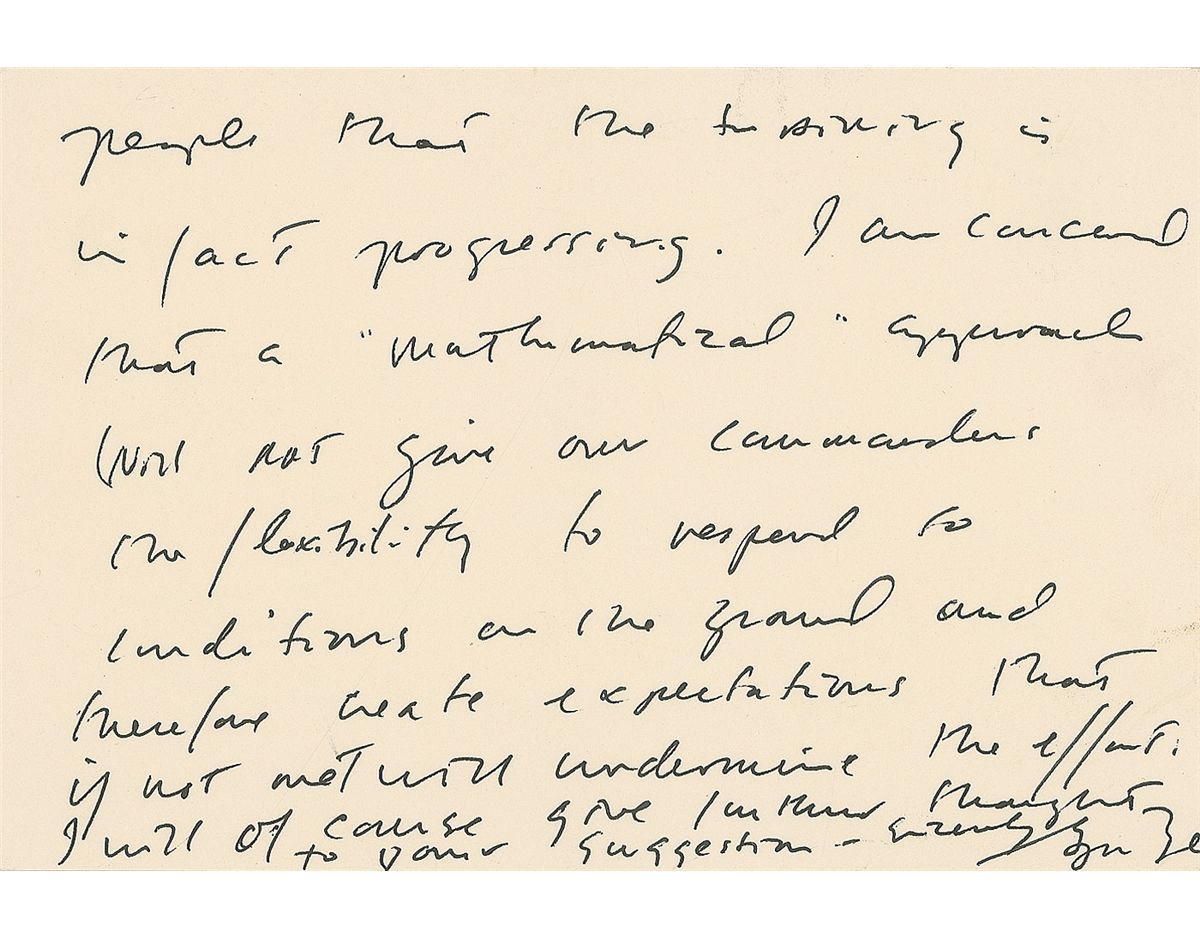 people that the training is
in fact progressing. I am concerned
that a "mathematical" approach
will not give our commanders
the flexibility to respond to
conditions on the ground and
therefore create expectations that
if not met will undermine the effort.
I will of course give further thought
to your suggestion - sincerely